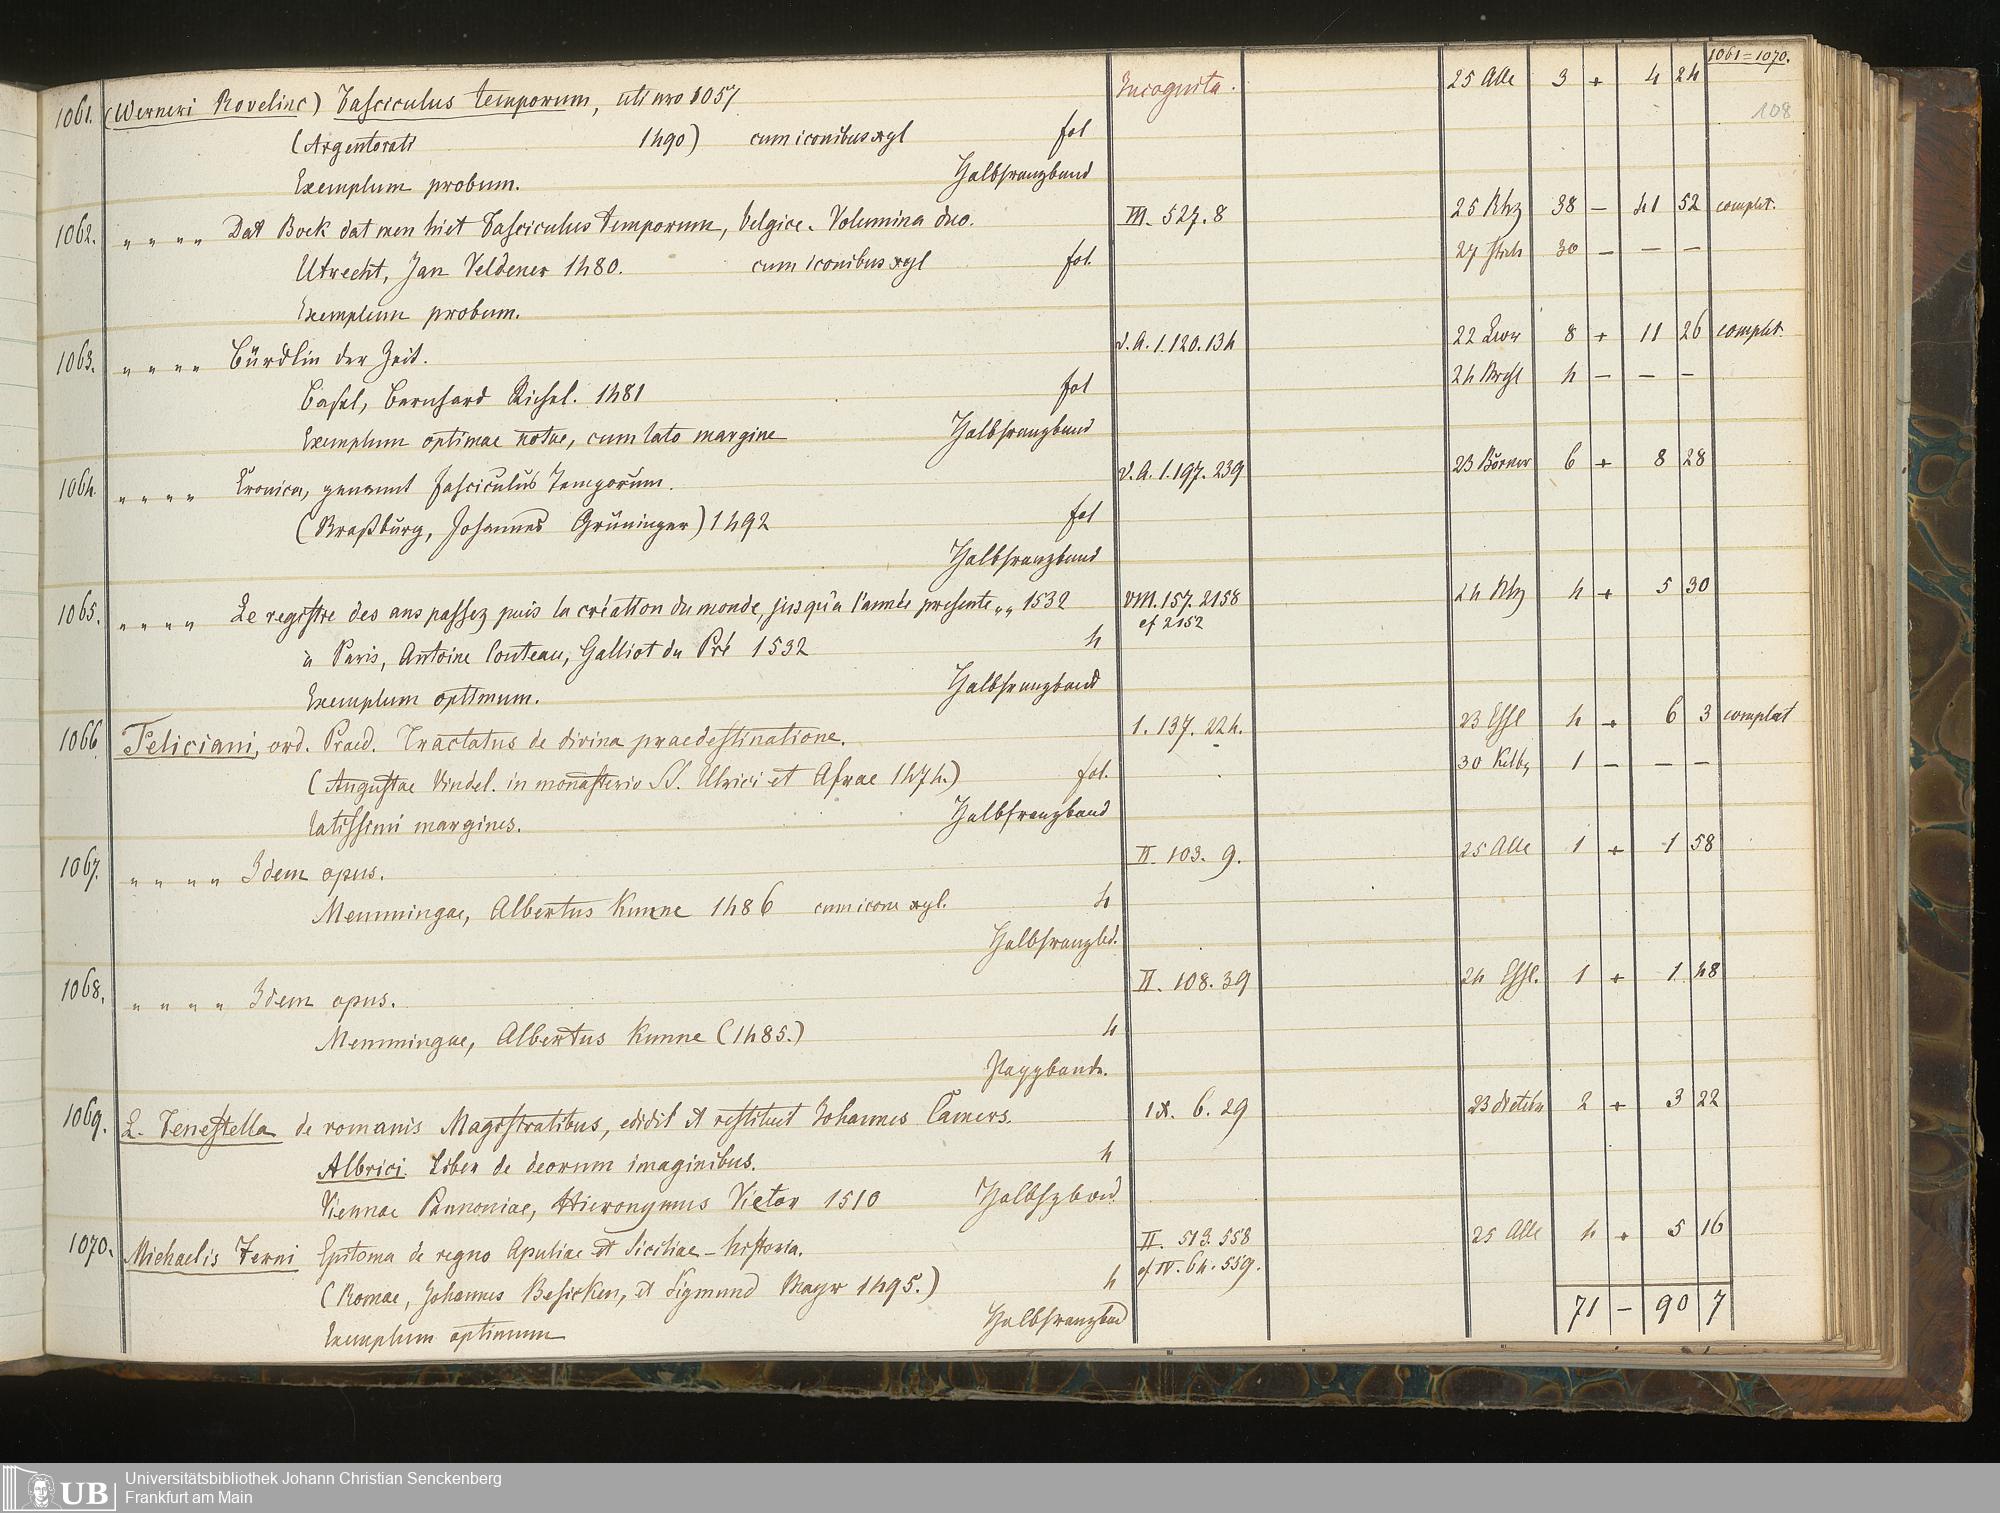 1061=1070.
108
1061. (Werneri Rovelinc) Fasciculus temporum, uti nro 1057 Incognita. 25 Alle 3 + 4 24
(Argentorati 1490) cum iconibus xyl fol
Exemplum probum. Halbfranzband
1062. " " " " Dat Boek dat men hiet Fasciculus temporum, belgice. Volumina duo. III. 527. 8 25 38 — 41 52 complet.
Utrecht, Jan Veldener 1480. cum iconibus xyl fol. 27 30 — — —
Exemplum probum.
1063. " " " " Bürdlin der Zeit. V.A. 1. 120. 134 22 8 + 11 26 complet.
Basel, Bernhard Richel. 1481 fol 24 4 — — —
Exemplum optimae notae, cum lato margine Halbfranzband
1064. " " " " Cronica, genannt fasciculus Temporum. V.A. 1. 197. 239 23 Börner 6 + 8 28
(Straßburg, Johannes Grüninger) 1492 fol
Halbfranzband
1065. " " " " Le registre des ans passez puis la création du monde, jusqu'a l'année presente „ 1532 VIII. 157. 2158 24 4 + 5 30
cf 2152
à Paris, Antoine Couteau, Galliot du Pré 1532 4
Exemplum optimum. Halbfranzband
1066. Feliciani, ord. Praed. Tractatus de divina praedestinatione. 1. 137. 224. 23 Essl 4 + 6 3 complet
(Augustae Vindel. in monasterio SS. Ulrici et Afrae 1474.) fol. 30 1 — — —
latissimi margines. Halbfranzband
1067. " " " " Idem opus. II. 103. 9. 25 Alle 1 + 1 58
Memmingae, Albertus Kunne 1486 cum icone xyl. 4
Halbfranzbd.
1068. " " " " Idem opus. II. 108. 39 24 Essl. 1 + 1 48
Memmingae, Albertus Kunne (1485.) 4
Pappband.
1069. L. Fenestella de romanis Magistratibus, edidit et restituit Johannes Camers. IX. 6. 29 23 2 + 3 22
Albrici Liber de deorum imaginibus. 4
Viennae Pannoniae, Hieronymus Vietor 1510 Halbfzband
1070. Michaelis Ferni Epitoma de regno Apuliae et Siciliae - historia. II. 513. 558 25 Alle 4 + 5 16
cf IV. 64. 559.
(Romae, Johannes Besicken, et Sigmund Mayr 1495.) 4
Exemplum optimum Halbfranzband
71 — 90 7
UB Universitätsbibliothek Johann Christian Senckenberg
Frankfurt am Main